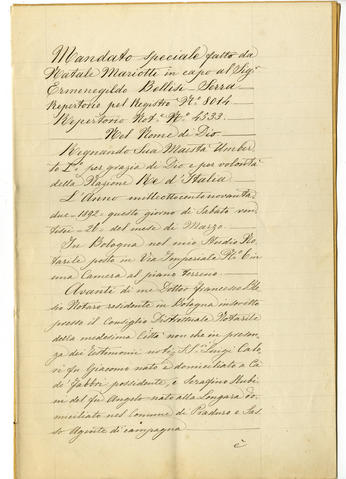 Mandato speciale fatto da
Natale Mariotti in capo al Sigr
Ermenegildo Bellisi-Serra
Repertorio pel Registro No 8014
Repertorio Noto No 4533.
Nel Nome di Dio
Regnando Sua Maestà Umber-
to Io per grazia di Dio e per volontà
della Nazione Re d'Italia
L'Anno milleottocentonovanta
due - 1892 questo giorno di Sabato ven
tisei - 26 - del mese di Marzo.
In Bologna nel mio Studio No
tarile posto in Via Imperiale No 6 in
una Camera al piano terreno.
Avanti di me Dottor Francesco
Notaro residente in Bologna inscritto
presso il Consiglio Distrettuale Notarile
della medesima Città non che in presen
za dei Testimoni noti S.S.i Luigi Calo
ri fu Giacomo nato e domiciliato a Ca
de' Fabbri possidente, e Serafino Rubi
ni del fu Angelo nato alla Longara do
miciliato nel Comune di Praduro e Sas
so Agente di campagna
è